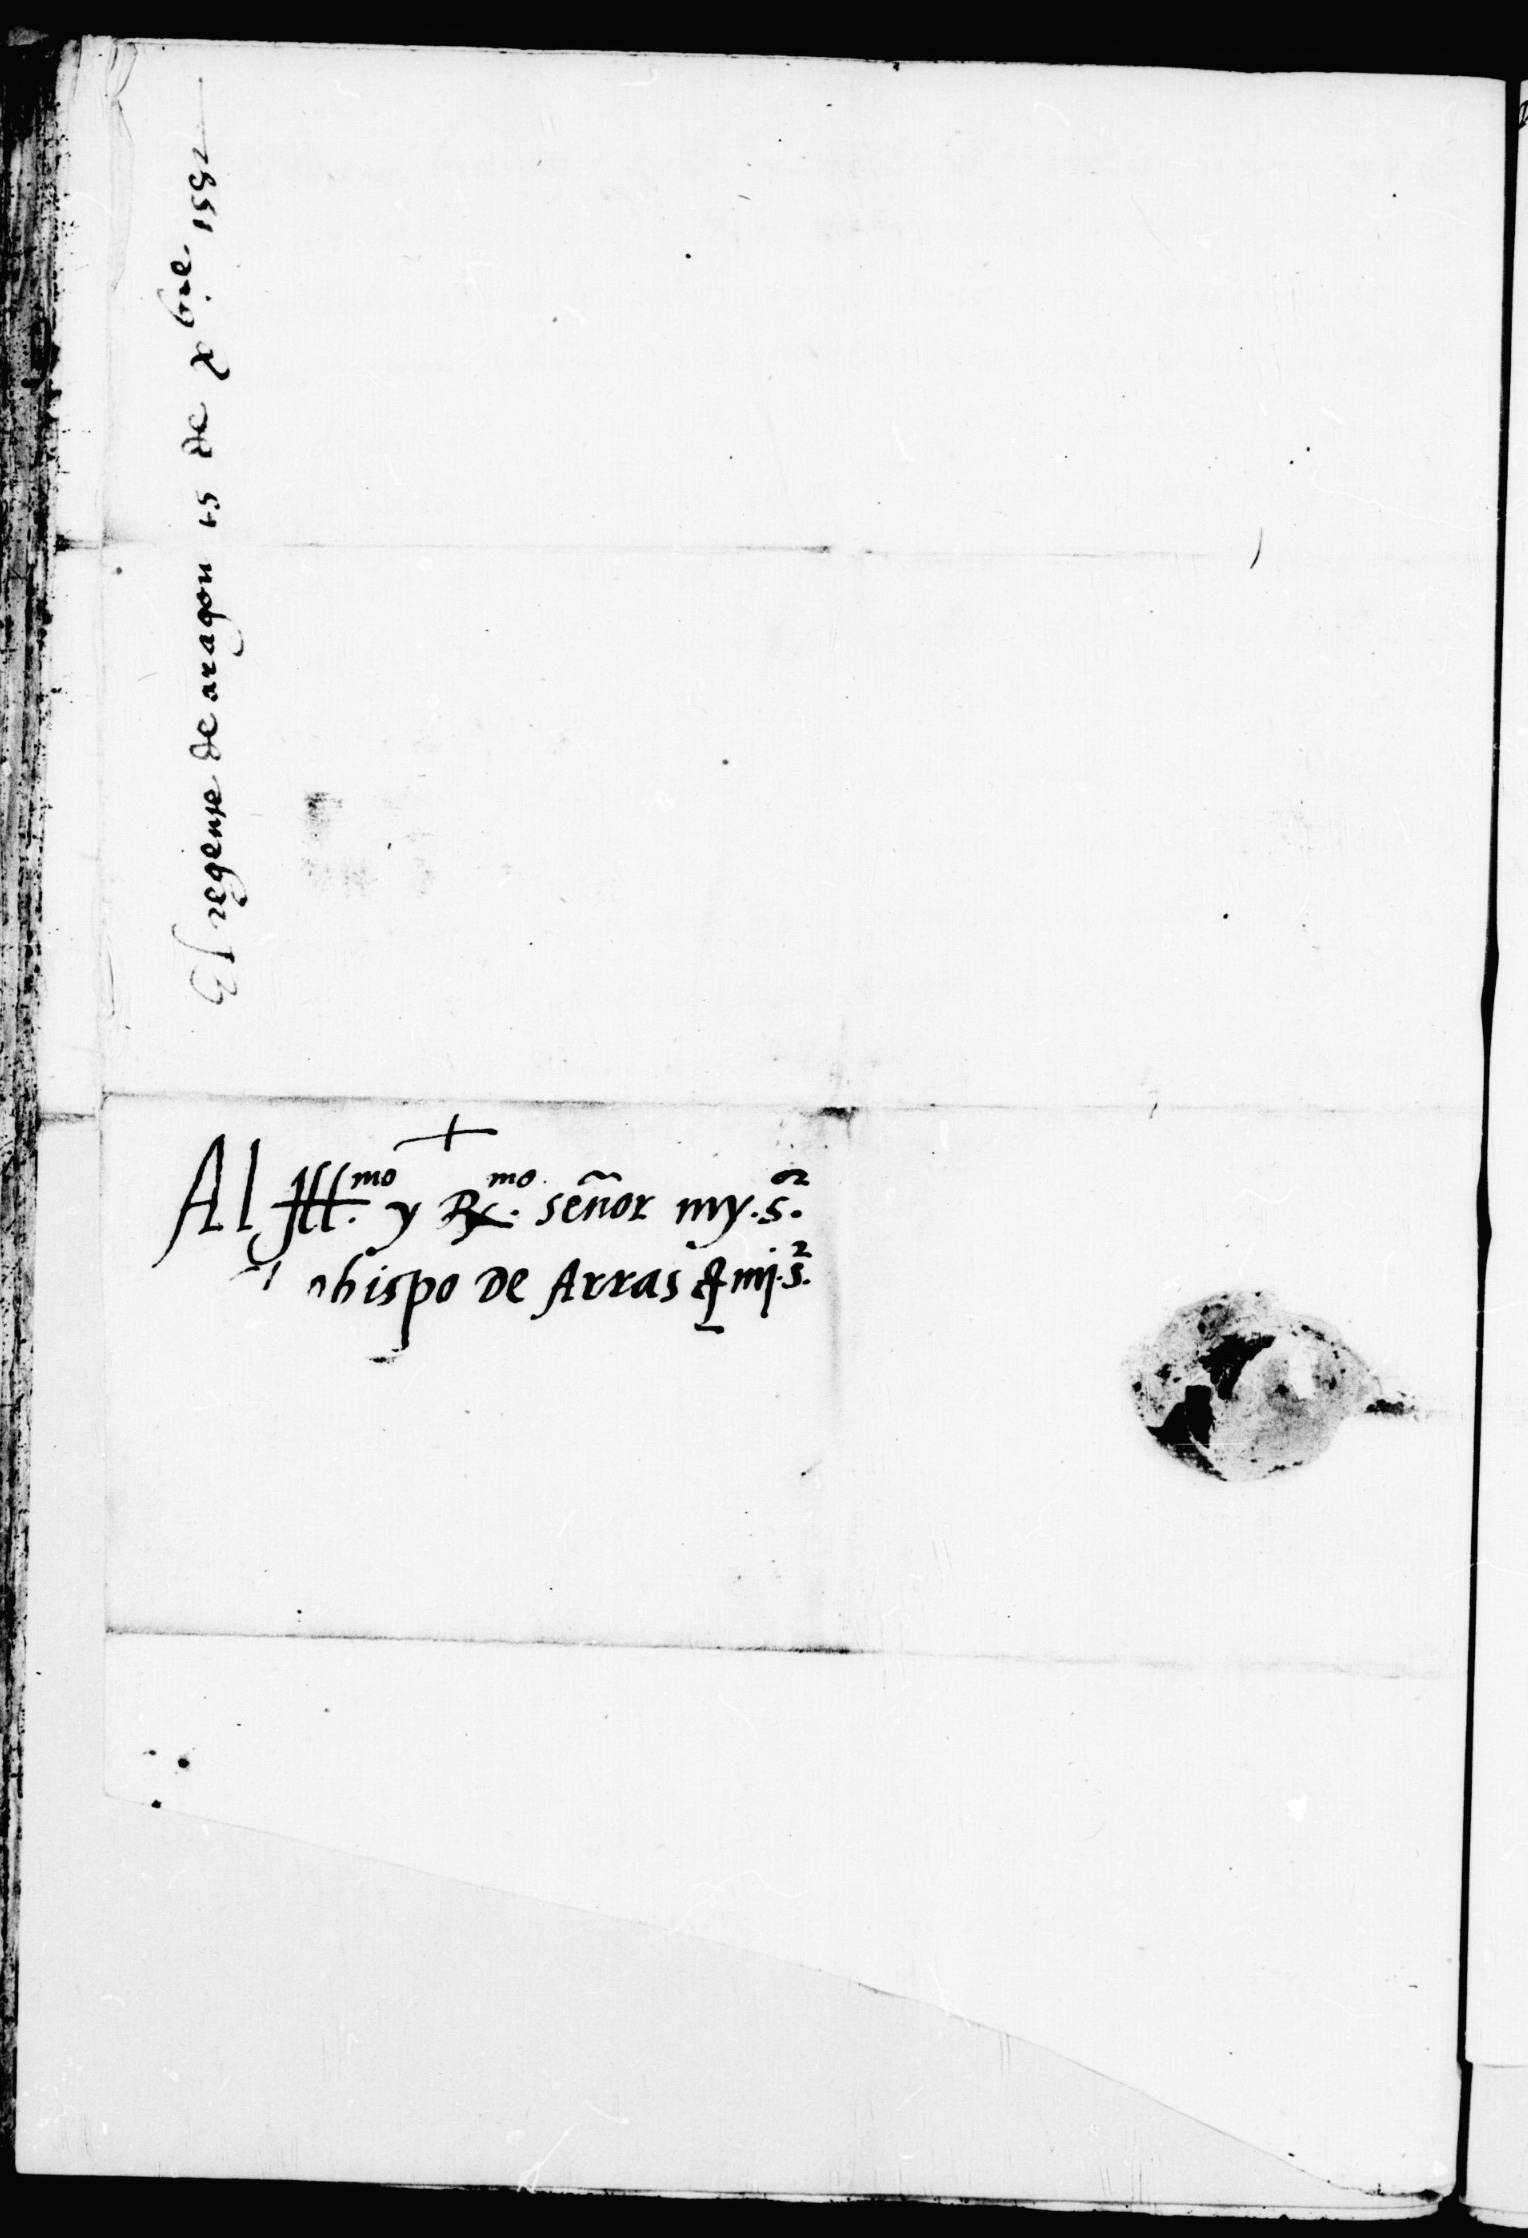 El regente de aragon 15 de Xbre. 1552
+
Al Ill.mo y R.mo señor my. s.or
el obispo de Arras mj. s.r